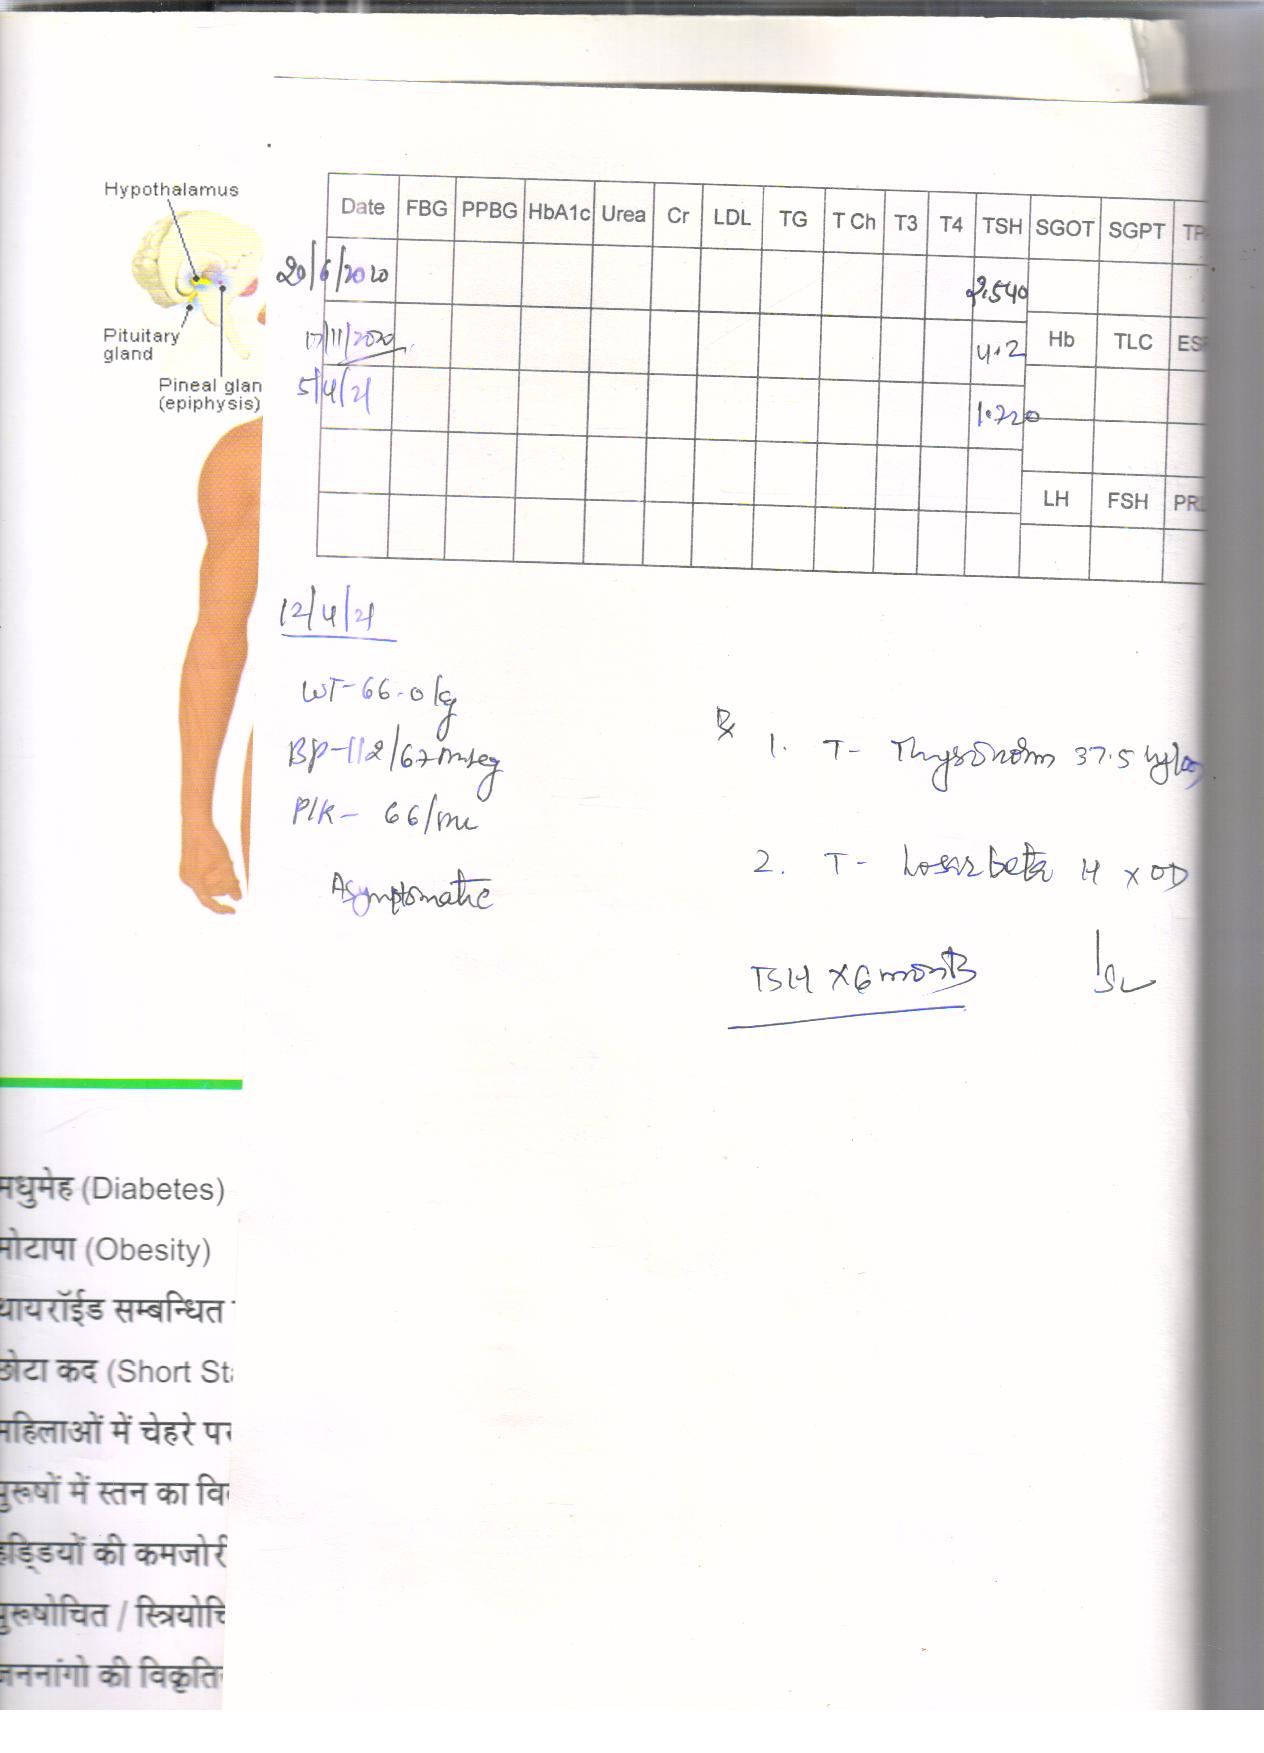 Hypothalamus
Pituitary
gland
Pineal glan
(epiphysis)
Date FBG PPBG HbA1c Urea Cr LDL TG T Ch T3 T4 TSH SGOT SGPT
20/6/2020 2.540
Hb TLC
17/11/2020 4.2
5/4/21 1.720
LH FSH PRL
12/4/21
WT-66.0 kg
BP-112/67 mmHg
P/R- 66/mi
Asymptomatic
Rx 1. T- Thyronorm 37.5
2. T- beta H x OD
TSH x 6 months
मधुमेह (Diabetes)
मोटापा (Obesity)
थायरॉईड सम्बन्धित
छोटा कद (Short St
महिलाओं में चेहरे प
पुरूषों में स्तन का वि
हड्डियों की कमजोरी
पुरूषोचित / स्त्रियोचि
जननांगो की विकृति